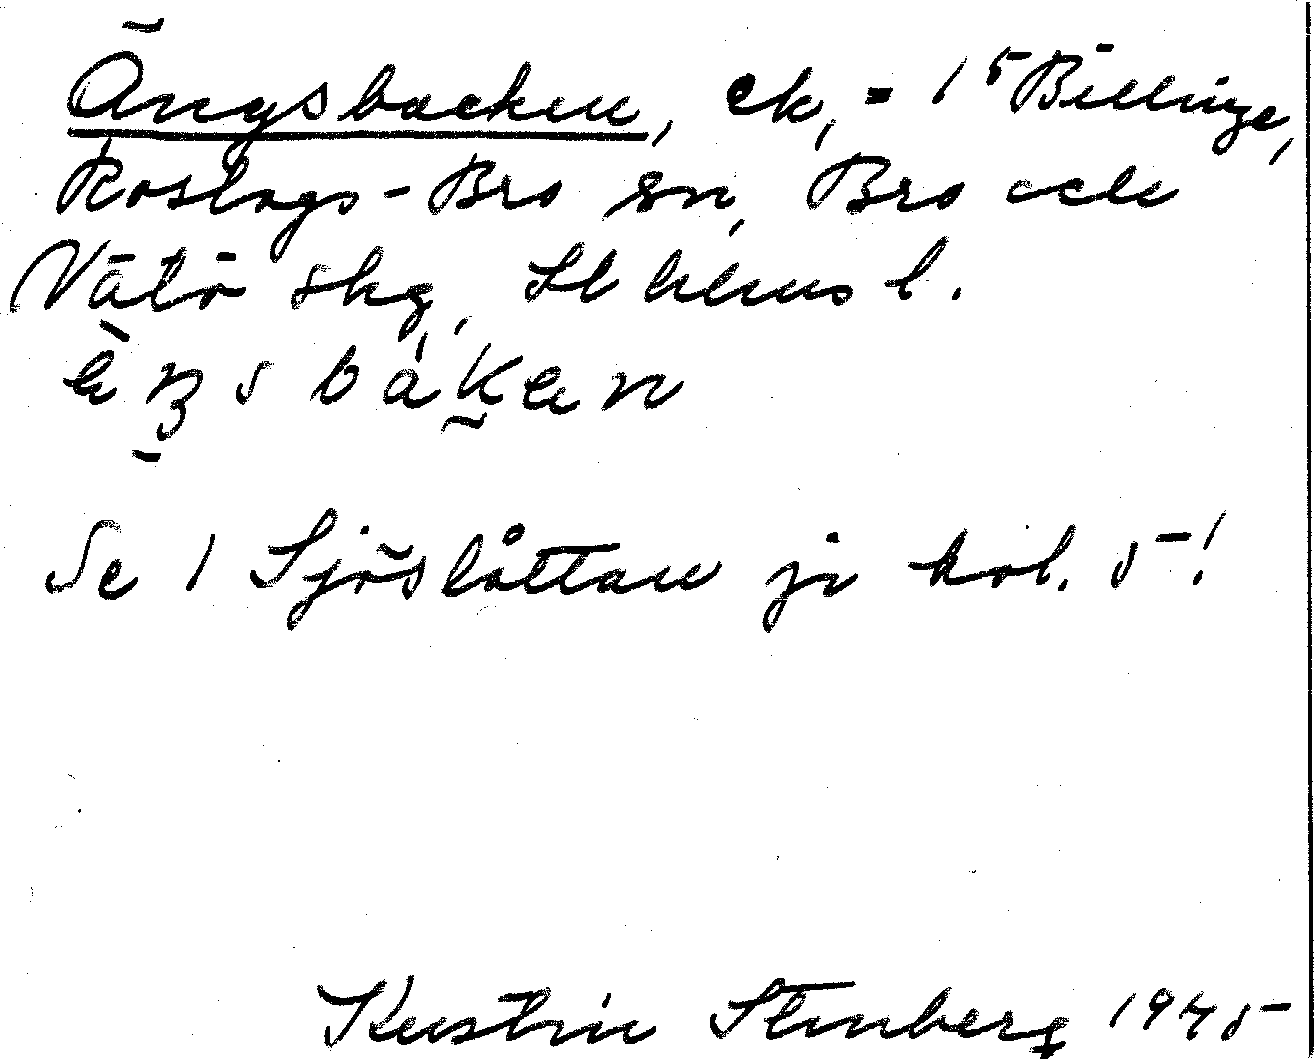 Ängsbacken, ck, = 1⁵ Billinge,
Roslags-Bro sn, Bro och
Vätö skg, Sthlms l.
Se 1 Sjöslåttan ji kol. 5!
Kerstin Stenberg 1945